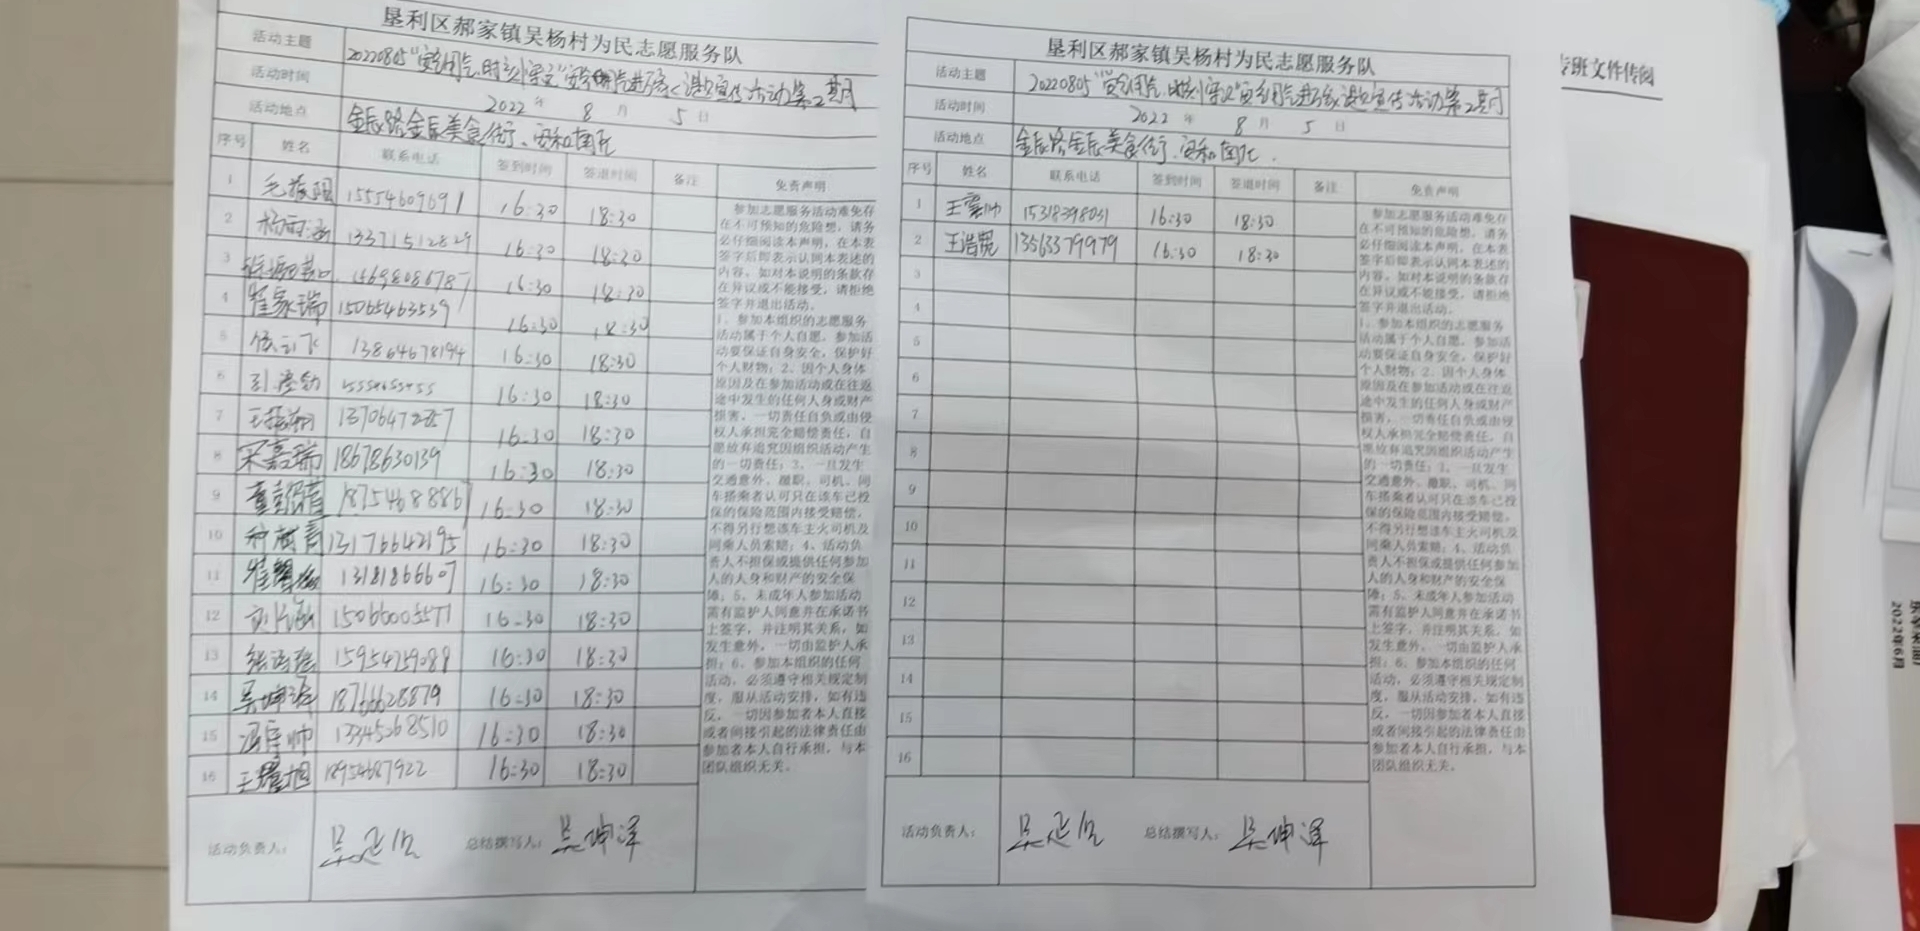 垦利区郝家镇吴杨村为民志愿服务队
活动主题
20220805"安全用气,时刻牢记"安全用气进家入温馨宣传活动第2期
活动时间
2022年8月5日
活动地点
金辰路金辰美食街、安和南区
序号 姓名 联系电话 签到时间 签退时间 备注 免责声明
1 15554609691 16:30 18:30
2 杨雨涵 13371512829 16:30 18:30
3 15698086787 16:30 18:30
4 崔家瑞 15065463539 16:30 18:30
5 13864678194 16:30 18:30
6 16:30 18:30
7 16:30 18:30
8 宋嘉瑞 18678630139 16:30 18:30
9 18754688867 16:30 18:30
10 种树青 13176642195 16:30 18:30
11 13181866607 16:30 18:30
12 15066005577 16:30 18:30
13 15954259089 16:30 18:30
14 吴坤泽 18766628879 16:30 18:30
15 冯厚帅 13345268510 16:30 18:30
16 王耀旭 18954687922 16:30 18:30
参加志愿服务活动难免存
在不可预知的危险想,请务
必仔细阅读本声明,在本表
签字后即表示认同本表述的
内容。如对本说明的条款存
在异议或不能接受,请拒绝
签字并退出活动。
1、参加本组织的志愿服务
活动属于个人自愿,参加活
动要保证自身安全,保护好
个人财物;2、因个人身体
原因及在参加活动或在往返
途中发生的任何人身或财产
损害,一切责任自负或由侵
权人承担完全赔偿责任,自
愿放弃追究因组织活动产生
的一切责任;3、一旦发生
交通意外,撤职、司机、同
车搭乘者认可只在该车已投
保的保险范围内接受赔偿,
不得另行想该车主火司机及
同乘人员索赔;4、活动负
责人不担保或提供任何参加
人的人身和财产的安全保
障;5、未成年人参加活动
需有监护人同意并在承诺书
上签字,并注明其关系,如
发生意外,一切由监护人承
担;6、参加本组织的任何
活动,必须遵守相关规定制
度,服从活动安排,如有违
反,一切因参加者本人直接
或者间接引起的法律责任由
参加者本人自行承担,与本
团队组织无关。
活动负责人: 总结撰写人: 吴坤泽
垦利区郝家镇吴杨村为民志愿服务队
活动主题
20220805"安全用气,时刻牢记"安全用气进家入温馨宣传活动第2期
活动时间
2022年8月5日
活动地点
金辰路金辰美食街、安和南区.
序号 姓名 联系电话 签到时间 签退时间 备注 免责声明
1 王云帅 15318398031 16:30 18:30
2 王浩宽 13563379979 16:30 18:30
3
4
5
6
7
8
9
10
11
12
13
14
15
16
参加志愿服务活动难免存
在不可预知的危险想,请务
必仔细阅读本声明,在本表
签字后即表示认同本表述的
内容。如对本说明的条款存
在异议或不能接受,请拒绝
签字并退出活动。
1、参加本组织的志愿服务
活动属于个人自愿,参加活
动要保证自身安全,保护好
个人财物;2、因个人身体
原因及在参加活动或在往返
途中发生的任何人身或财产
损害,一切责任自负或由侵
权人承担完全赔偿责任,自
愿放弃追究因组织活动产生
的一切责任;3、一旦发生
交通意外,撤职、司机、同
车搭乘者认可只在该车已投
保的保险范围内接受赔偿,
不得另行想该车主火司机及
同乘人员索赔;4、活动负
责人不担保或提供任何参加
人的人身和财产的安全保
障;5、未成年人参加活动
需有监护人同意并在承诺书
上签字,并注明其关系,如
发生意外,一切由监护人承
担;6、参加本组织的任何
活动,必须遵守相关规定制
度,服从活动安排,如有违
反,一切因参加者本人直接
或者间接引起的法律责任由
参加者本人自行承担,与本
团队组织无关。
活动负责人: 总结撰写人: 吴坤泽
专班文件传阅
2022年6月